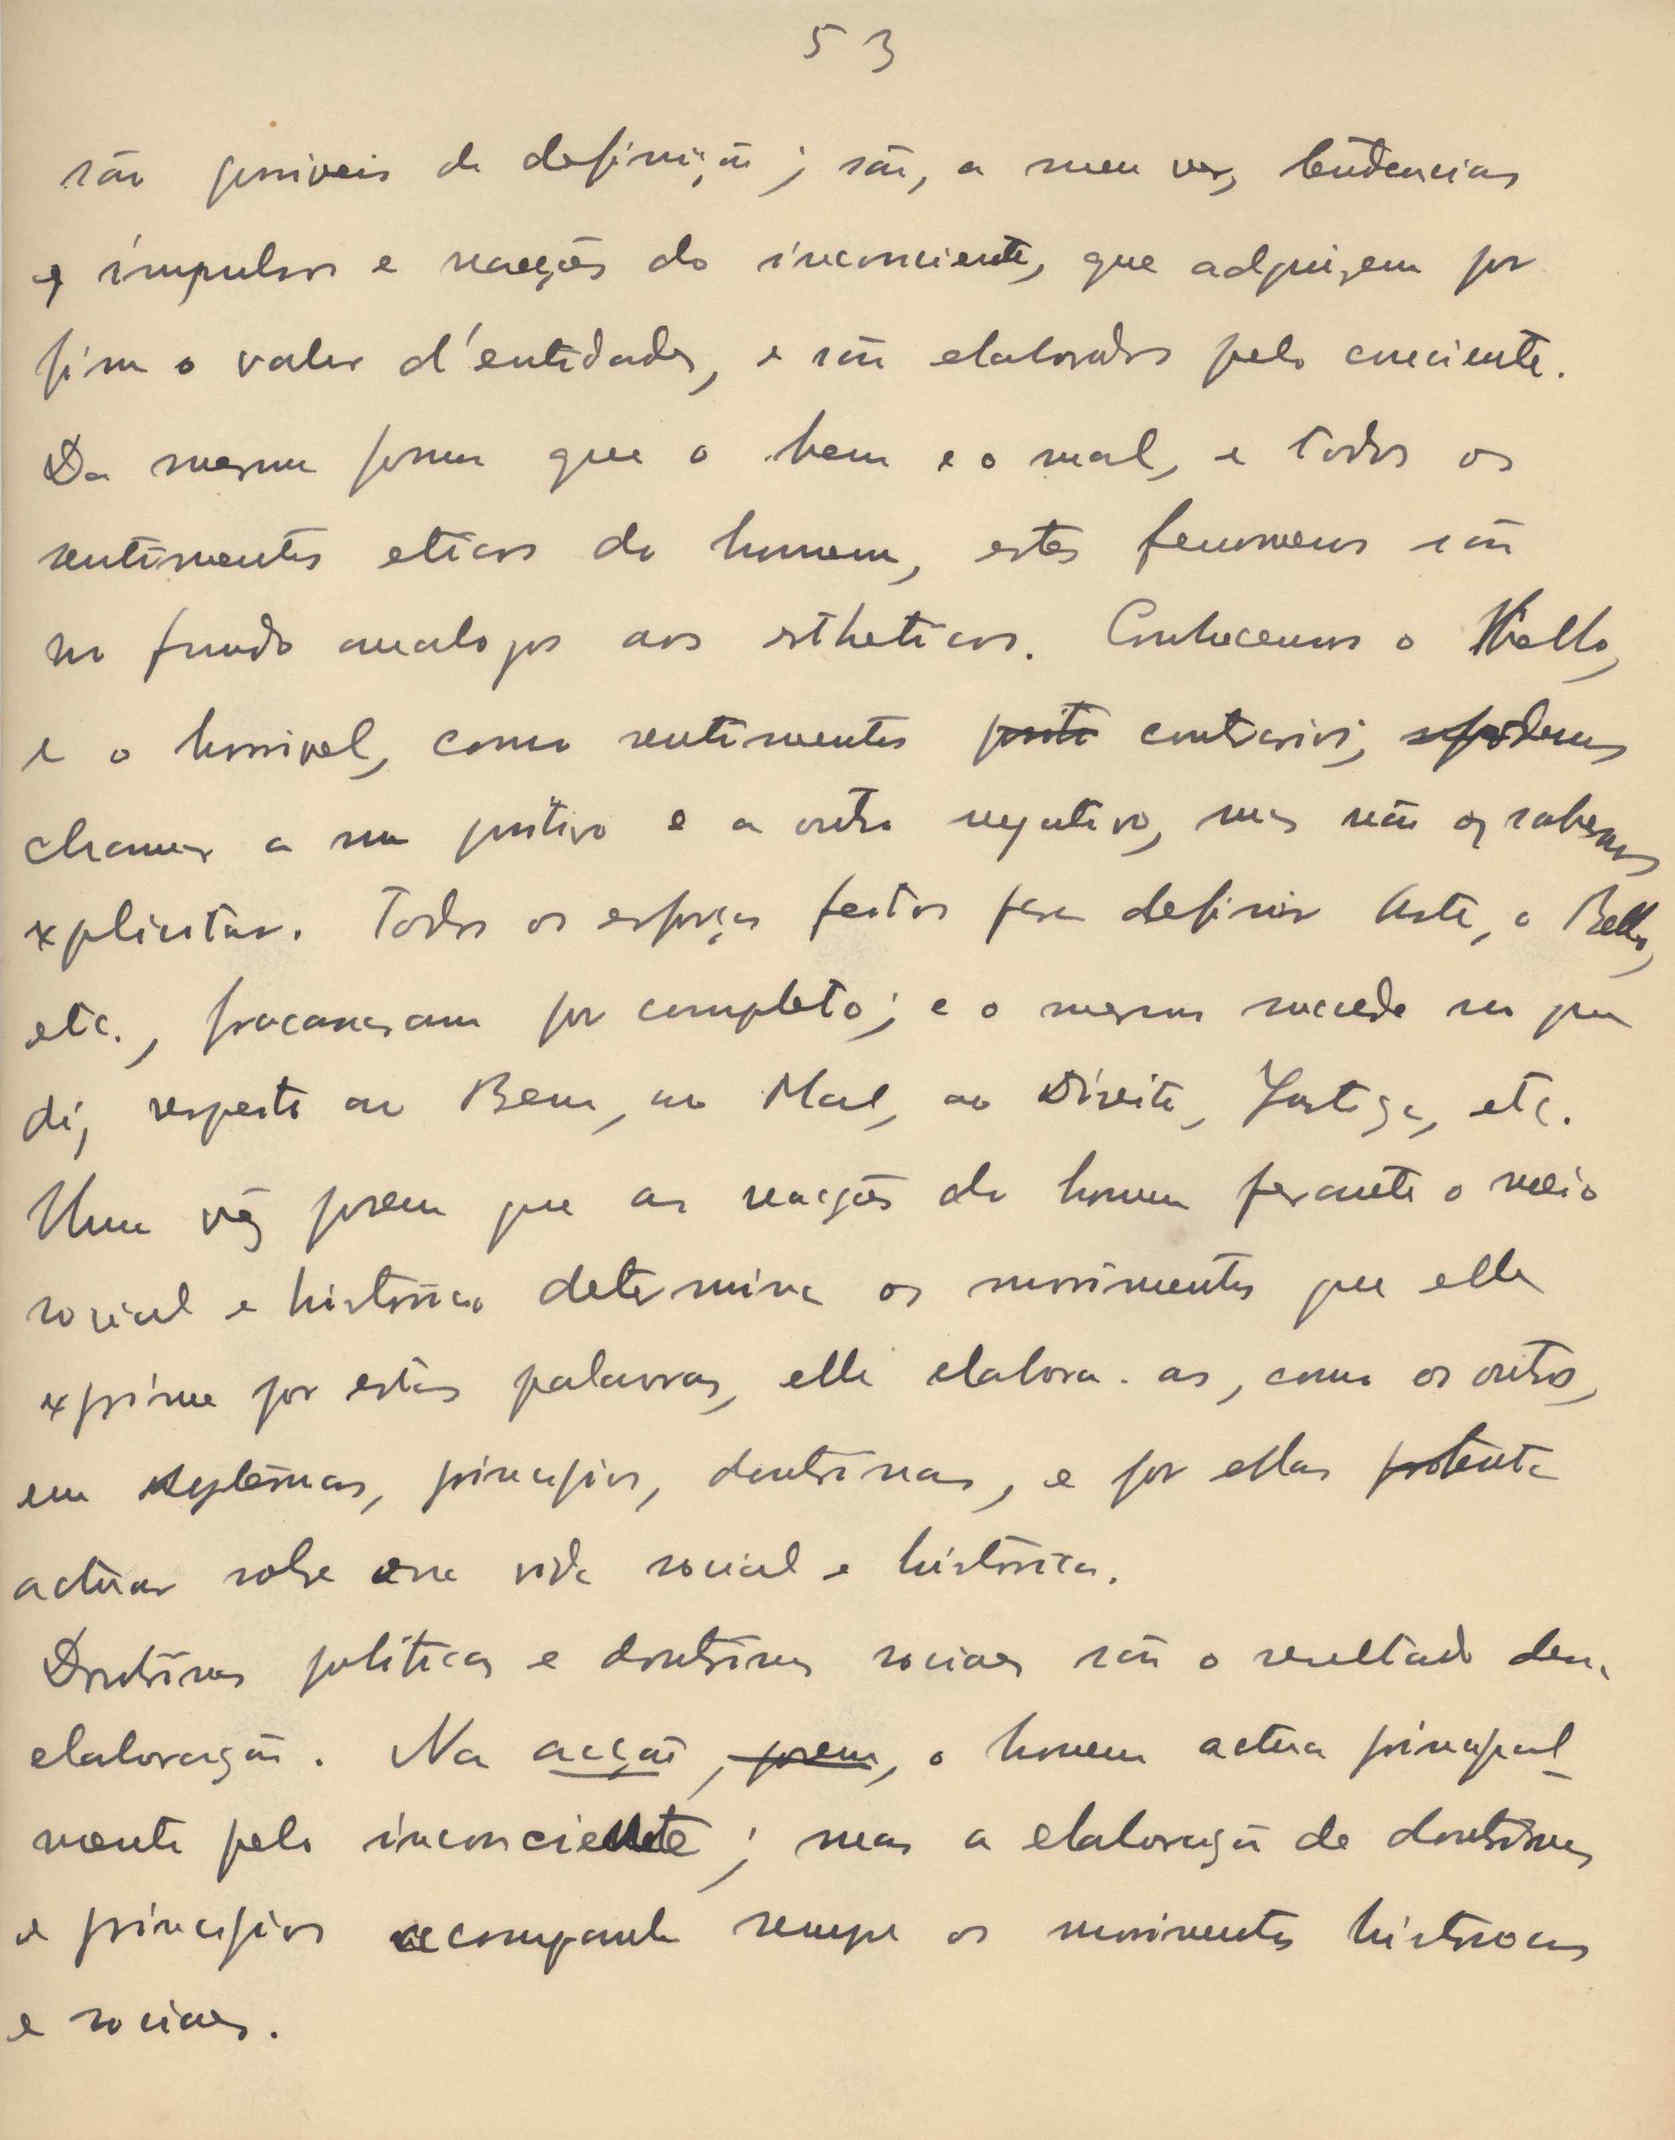 53
são possiveis de definição; são, a meu ver, tendencias
e impulsos e reacções do inconciente, que adquirem por
fim o valor d'entidades, e são elaborados pelo conciente.
Da mesma forma que o bem e o mal, e todos os
sentimentos eticos do homem, estes fenomenos são
no fundo analogos aos estheticos. Conhecemos o Bello,
e o horrivel, como sentimentos posits contrarios; podemos
chamar a um positivo e a outro negativo, mas não os sabemos
explicitar. Todos os esforços feitos para definir Arte, o Bello,
etc., fracassaram por completo; e o mesmo succede no que
diz respeito ao Bem, ao Mal, ao Direito, Justiça, etc.
Uma vez porem que as reacções do homem perante o meio
social e historico determina os movimentos que elle
exprime por estas palavras, elle elabora-as, como os outros,
em systemas, principios, doutrinas, e por ellas tenta
actuar sobre essa vida social e historica.
Doutrinas politicas e doutrinas sociaes são o resultado dessa
elaboração. Na acção, porem, o homem actua principal-
mente pelo inconciente; mas a elaboração de doutrinas
e principios acompanha sempre os movimentos historicos
e sociaes.